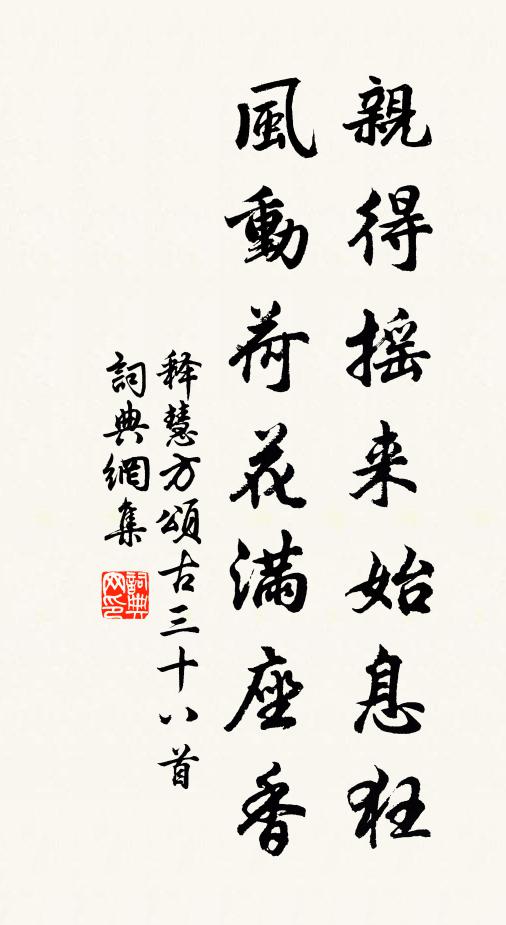 親得摇来始息狂
風動荷花滿座香
释慧方頌古三十八首
詞典網集
詞典網印